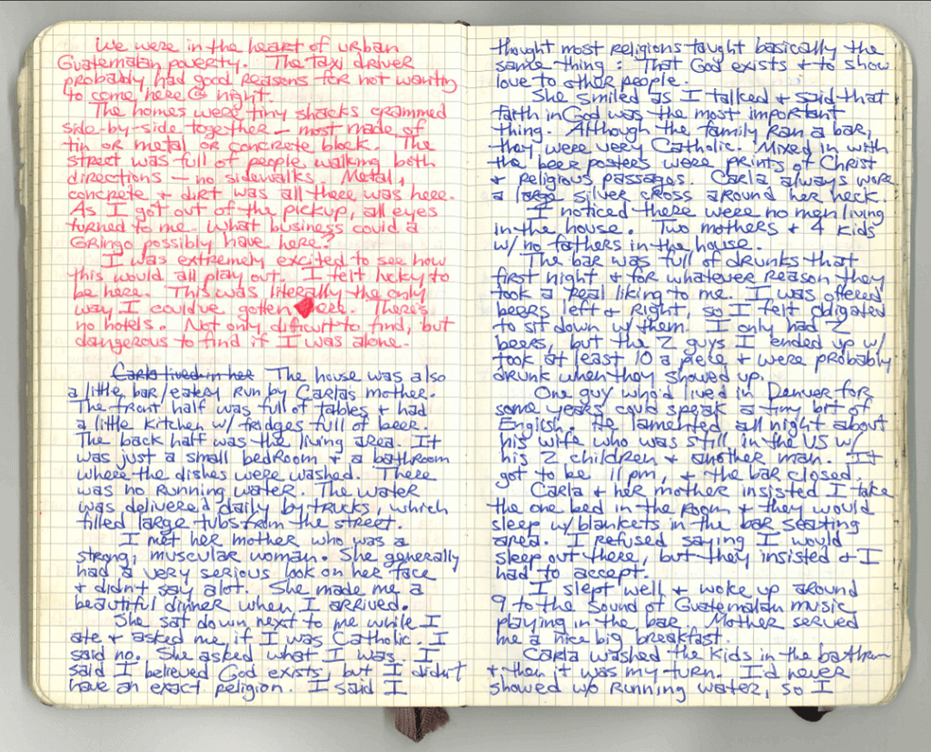 We were in the heart of urban
Guatemalan poverty. The taxi driver
probably had good reasons for not wanting
to come here @ night.
The homes were tiny shacks crammed
side-by-side together – most made of
tin or metal or concrete block. The
street was full of people walking both
directions – no sidewalks. Metal,
concrete + dirt was all there was here.
As I got out of the pickup, all eyes
turned to me. What business could a
Gringo possibly have here?
I was extremely excited to see how
this would all play out. I felt lucky to
be here. This was literally the only
way I could've gotten here. There's
no hotels. Not only difficult to find, but
dangerous to find if I was alone.
Carla lived in her The house was also
a little bar/eatery run by Carlas mother.
The front half was full of tables + had
a little kitchen w/ fridges full of beer.
The back half was the living area. It
was just a small bedroom + a bathroom
where the dishes were washed. There
was no running water. The water
was delivered daily by trucks, which
filled large tubs from the street.
I met her mother who was a
strong, muscular woman. She generally
had a very serious look on her face
+ didn't say alot. She made me a
beautiful dinner when I arrived.
She sat down next to me while I
ate + asked me if I was Catholic. I
said no. She asked what I was. I
said I believed God exists, but I didn't
have an exact religion. I said I
thought most religions taught basically the
same thing: That God exists + to show
love to other people.
She smiled as I talked + said that
faith in God was the most important
thing. Although the family ran a bar,
they were very Catholic. Mixed in with
the beer posters were prints of Christ
+ religious passages. Carla always wore
a large silver cross around her neck.
I noticed there were no men living
in the house. Two mothers + 4 kids
w/ no fathers in the house.
The bar was full of drunks that
first night + for whatever reason they
took a real liking to me. I was offered
beers left + right, so I felt obligated
to sit down w/ them. I only had 2
beers, but the 2 guys I ended up w/
took at least 10 a piece + were probably
drunk when they showed up.
One guy who'd lived in Denver for
some years could speak a tiny bit of
English. He lamented all night about
his wife who was still in the US w/
his 2 children + another man. It
got to be 11pm, + the bar closed.
Carla + her mother insisted I take
the one bed in the room + they would
sleep w/ blankets in the bar seating
area. I refused saying I would
sleep out there, but they insisted + I
had to accept.
I slept well + woke up around
9 to the sound of Guatemalan music
playing in the bar. Mother served
me a nice big breakfast.
Carla washed the kids in the bathrm
+ then it was my turn. I'd never
showed w/o running water, so I